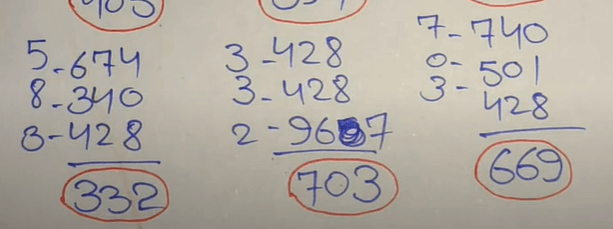 5-674
8-340
3-428
332
3-428
3-428
2-967
703
7-740
0-501
3-428
669